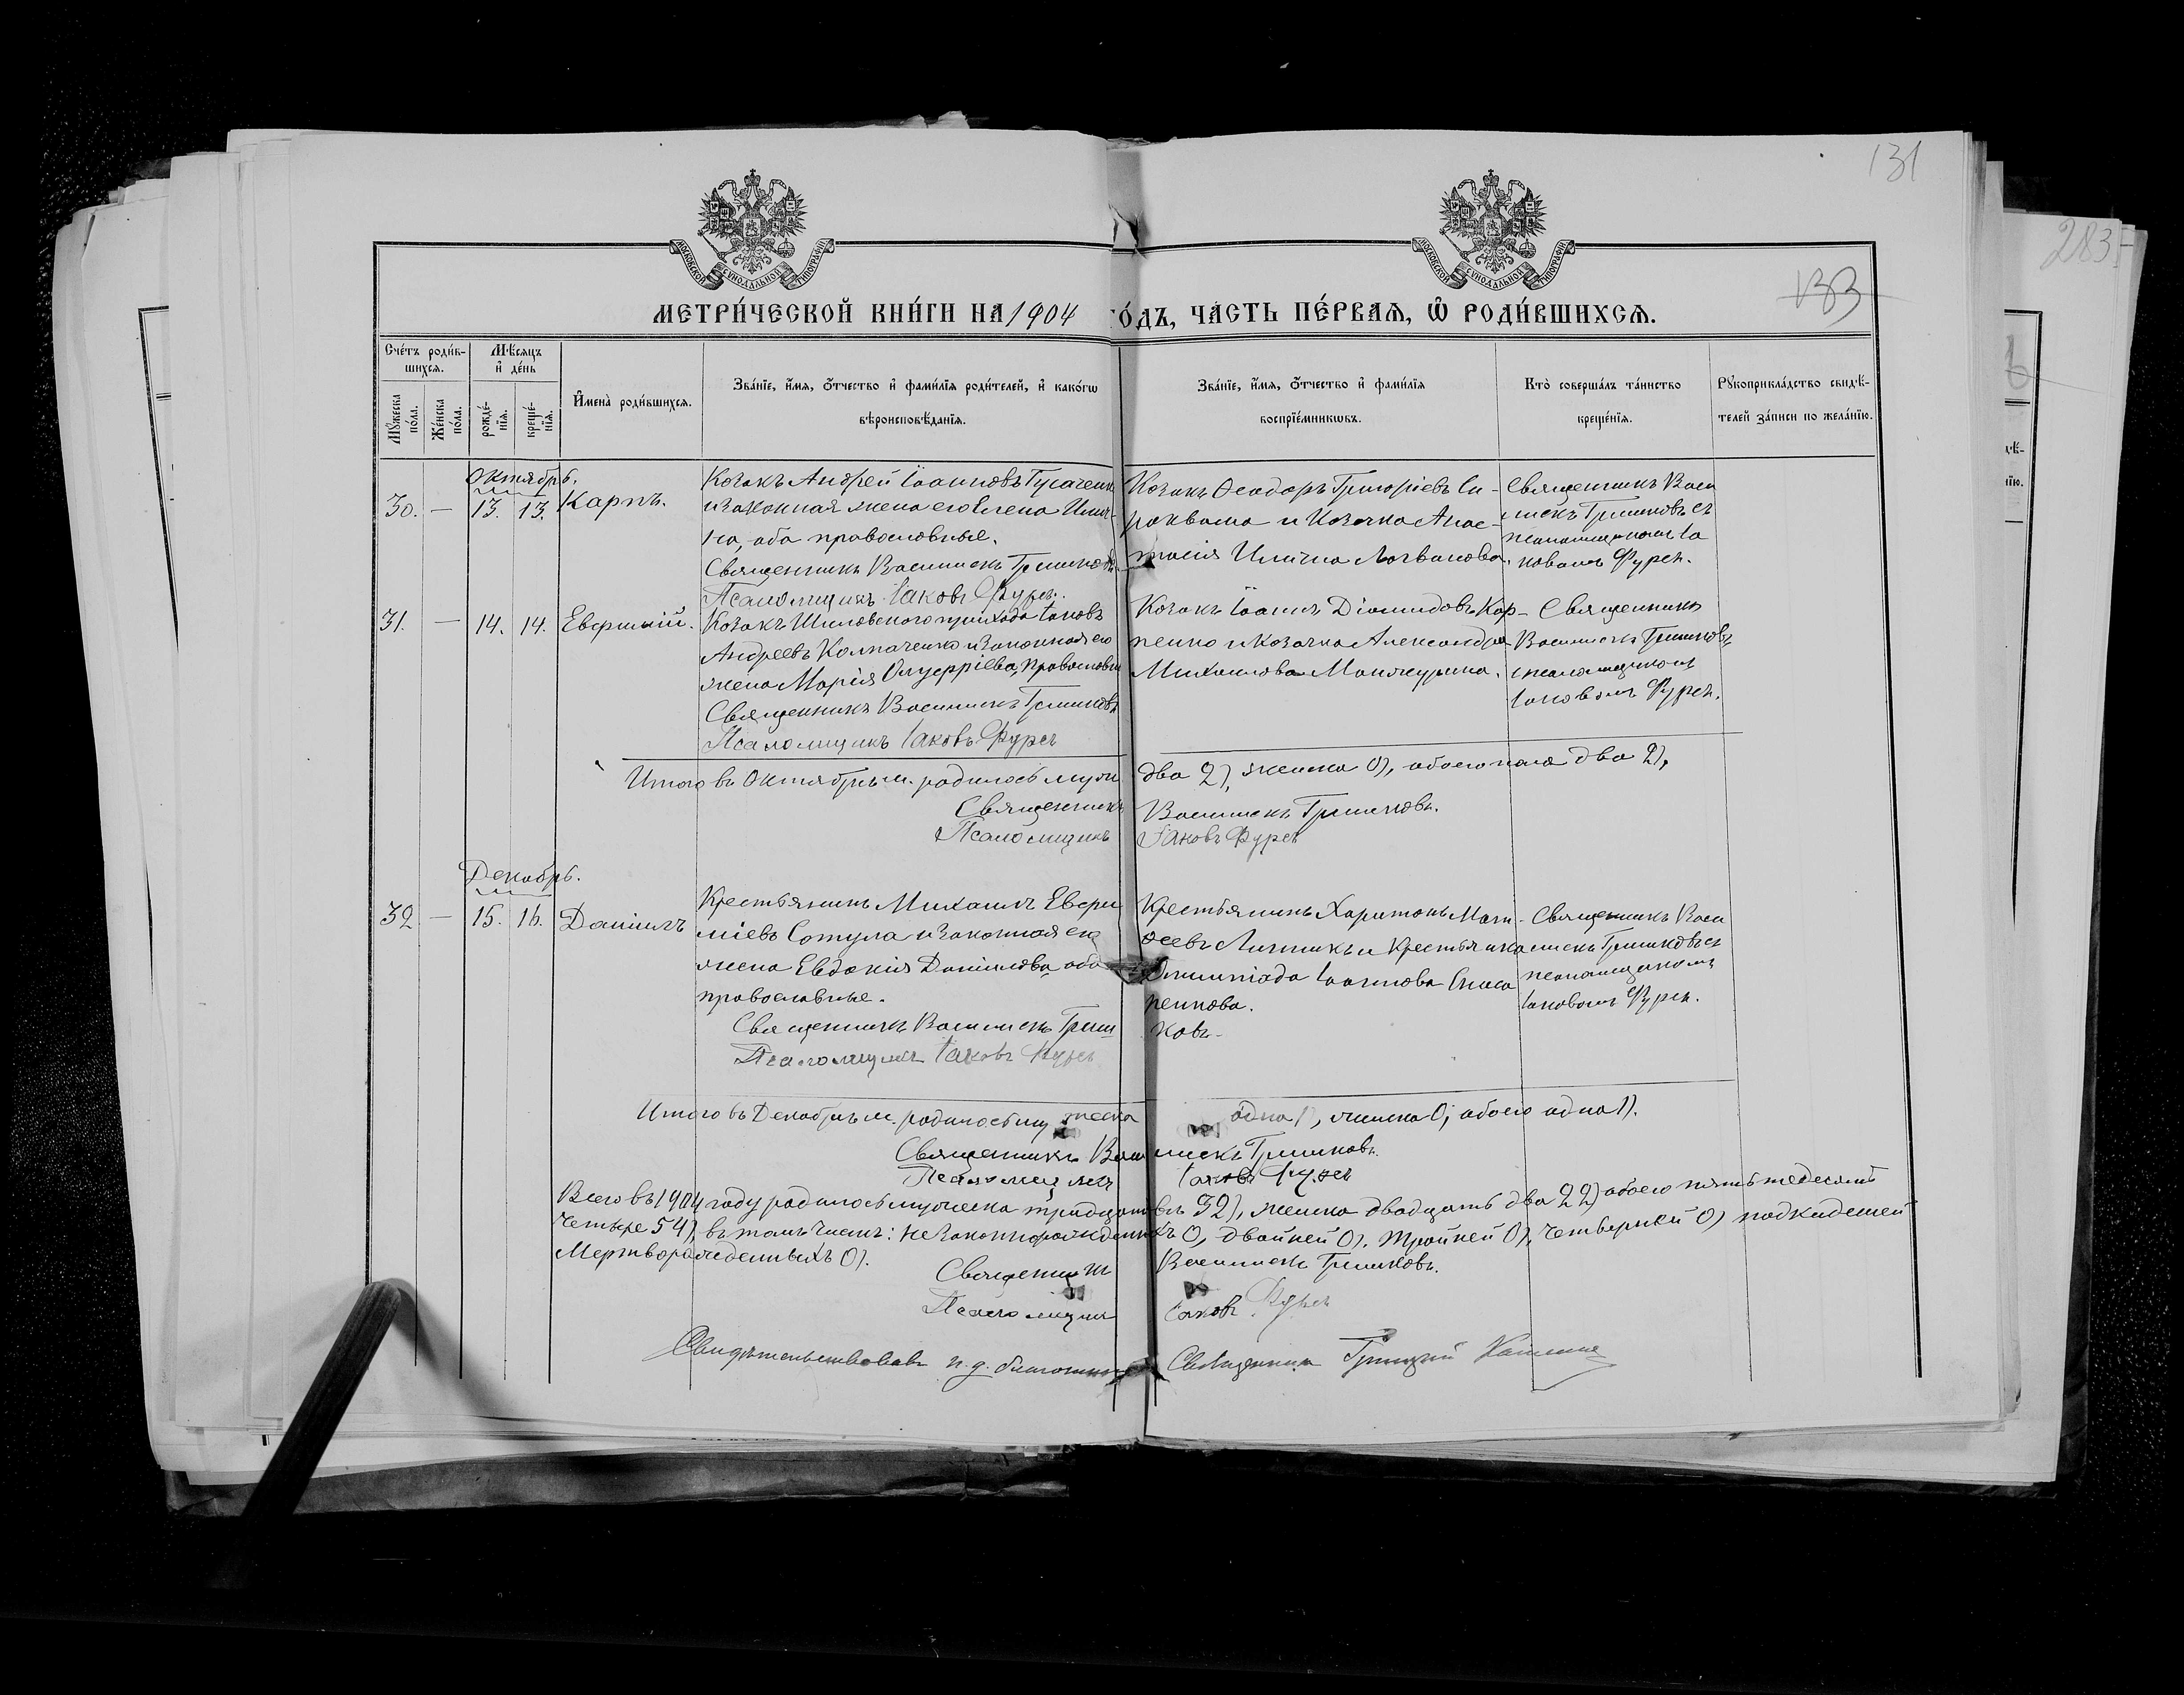 131
283
133
МОСКОВСКОЙ СѴНОДАЛЬНОЙ ТИПОГРАФІИ
МОСКОВСКОЙ СѴНОДАЛЬНОЙ ТИПОГРАФІИ
МЕТРИ́ЧЕСКОЙ КНИ́ГИ НА 1904 ГО́ДЪ, ЧА́СТЬ ПЕ́РВАѦ, Ѡ҆ РОДИ́ВШИХСѦ.
Сче́тъ роди́в-
шихсѧ.
Мꙋ́жеска по́ла.
Же́нска по́ла.
Мѣ́сѧцъ и҆ де́нь
рожде́-нїѧ.
креще́-нїѧ.
И҆мена̀ роди́вшихсѧ.
Зва́нїе, и҆́мѧ, ѻ҆́тчество и҆ фами́лїѧ роди́телей, и҆ како́гѡ
вѣроисповѣ́данїѧ.
Зва́нїе, и҆́мѧ, ѻ҆́тчество и҆ фами́лїѧ
воспрїе́мникѡвъ.
Кто̀ соверша́лъ та́инство
креще́нїѧ.
Рꙋкоприкла́дство свидѣ́-
телей за́писи по жела́нїю.
Октябрь.
30. — 13. 13. Карпъ.
Козакъ Андрей Іоанновъ Гусаченк
и законная жена его Елена Ильи-
на, оба православные.
Священникъ Василискъ Гришковъ.
Псаломщикъ Іаковъ Фурсъ.
Козакъ Ѳеодоръ Григоріевъ Си-
рокваша и Козачка Анас-
тасія Ильина Логванова.
Священникъ Васи
лискъ Гришковъ съ
псаломщикомъ Іа
ковомъ Фурсъ.
31. — 14. 14. Евѳимій.
Козакъ Шиловского прихода Іаковъ
Андреевъ Колпаченко и законная его
жена Марія Онуфріева, православн
Священникъ Василискъ Гришковъ
Псаломщикъ Іаковъ Фурсъ
Козакъ Іоаннъ Діомидовъ Кар-
пенко и козачка Александра
Михаилова Манжурина.
Священникъ
Василискъ Гришковъ
съ псаломщикомъ
Іаковомъ Фурсъ.
Итого въ Октябрѣ м. родилось муж два 2), женска 0), обоего пола два 2),
Священникъ Василискъ Гришковъ.
Псаломщикъ Іаковъ Фурсъ
Декабрь.
32 — 15. 16. Даніилъ
Крестьянинъ Михаилъ Евѳи
міевъ Сотула и законная его
жена Евдокія Даніилова, оба
православные.
Священникъ Василискъ Гриш ковъ.
Псаломщикъ Іаковъ Фурсъ
Крестьянинъ Харитонъ Мат-
ѳеевъ Линникъ и крестьянка
Олимпіада Іоаннова
ренкова.
Священникъ Васи
лискъ Гришковъ съ
псаломщикомъ
Іаковомъ Фурсъ.
Итого въ Декабрѣ м. родилось мужеска одна 1), женска 0, обоего одна 1).
Священникъ Василискъ Гришковъ.
Псаломщикъ Іаковъ Фурсъ
Всего въ 1904 году родилось мужеска тридцать два 32), женска двадцать два 22) обоего пятьтедесятъ
четыре 54), въ томъ числѣ: незаконнорожденныхъ 0, двойней 0). тройней 0), четверней 0) подкидешей
Мертворожденныхъ 0).
Священникъ Василискъ Гришковъ.
Псаломщикъ Іаковъ Фурсъ
Свидѣтельствовалъ и. д. благочинн Священникъ Григорій